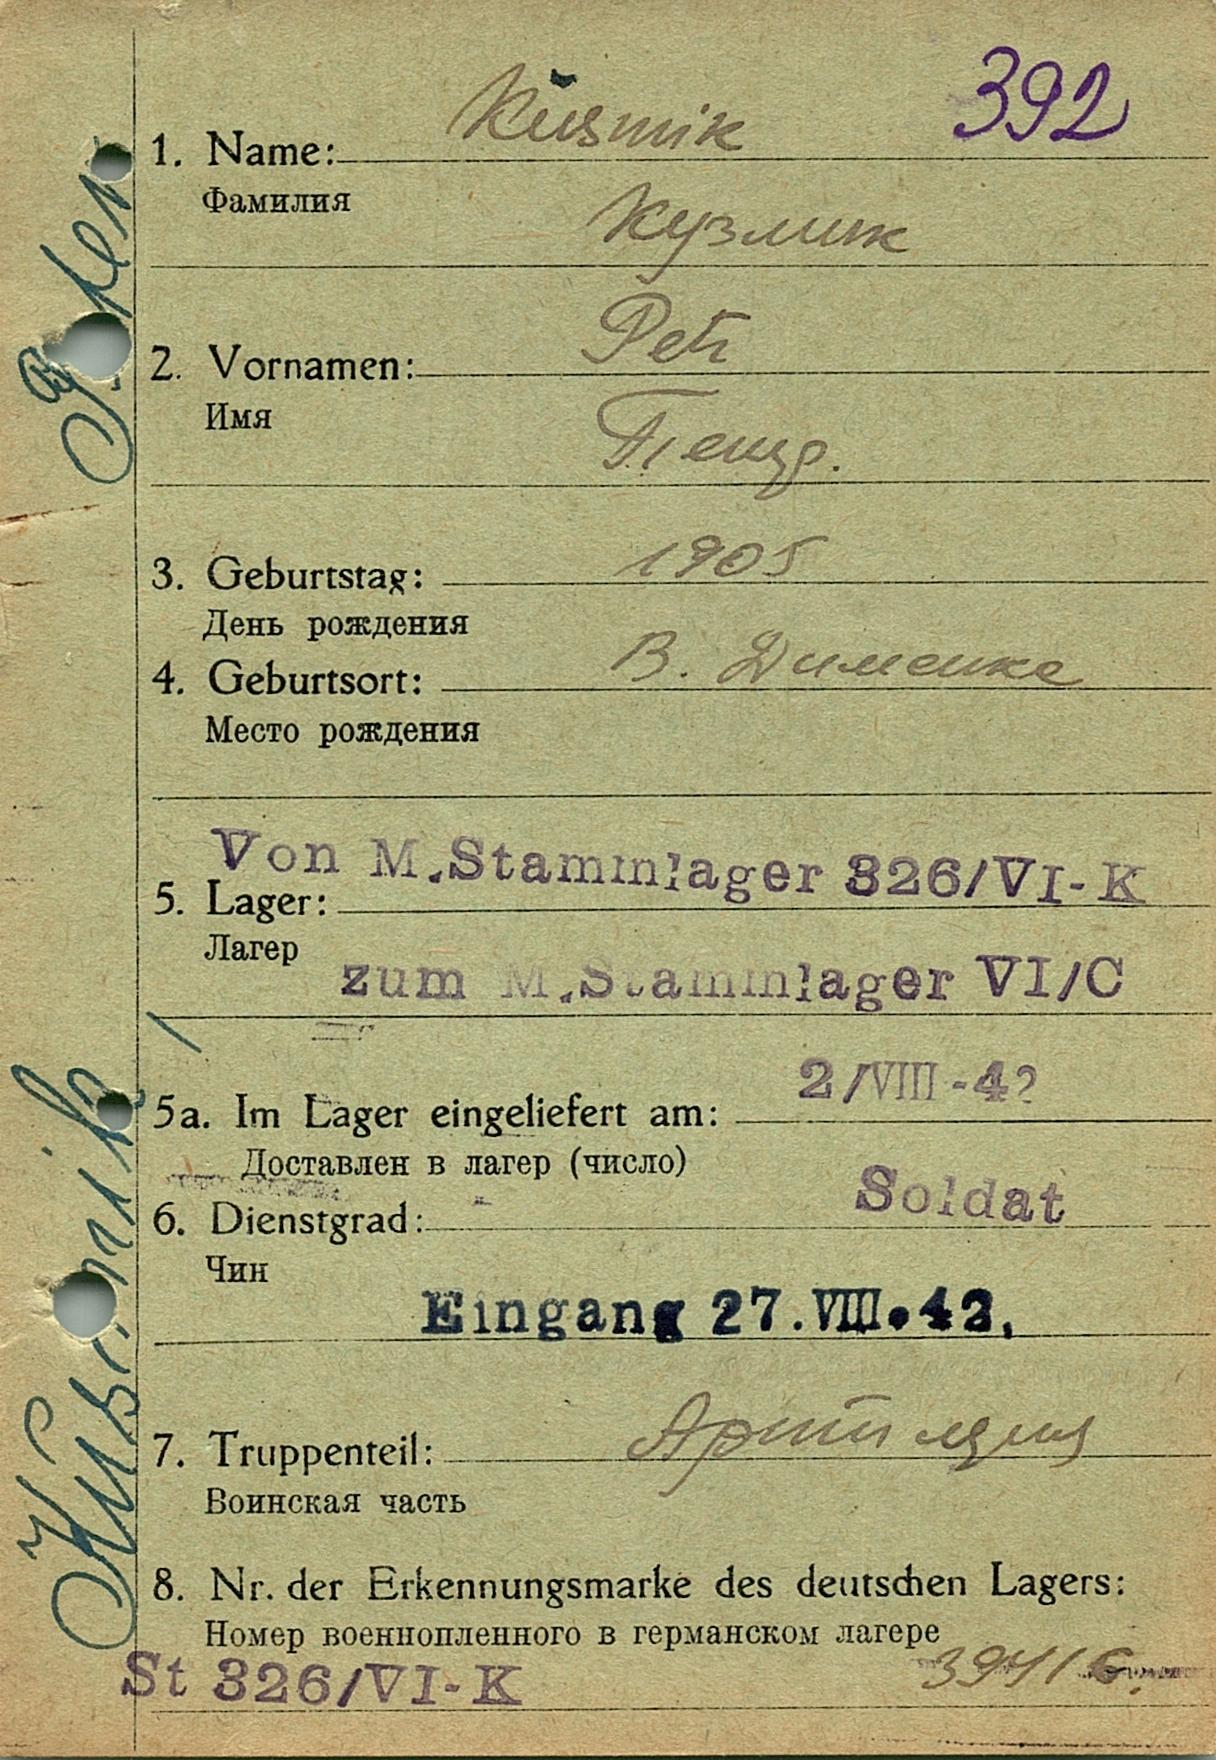 392
Kusmik
1. Name:
Фамилия
Кузмик
Petr
2. Vornamen:
Имя
Петр.
1905
3. Geburtstag:
День рождения
4. Geburtsort: В.
Место рождения
Von M.Stammlager 326/VI-K
5. Lager:
Лагер
zum M.Stammlager VI/C
2/VIII-42
5a. Im Lager eingeliefert am:
Доставлен в лагер (число)
Soldat
6. Dienstgrad:
Чин
Eingang 27.VIII.42.
7. Truppenteil:
Воинская часть
8. Nr. der Erkennungsmarke des deutschen Lagers:
Номер военнопленного в германском лагере
St 326/VI-K
Kusmik